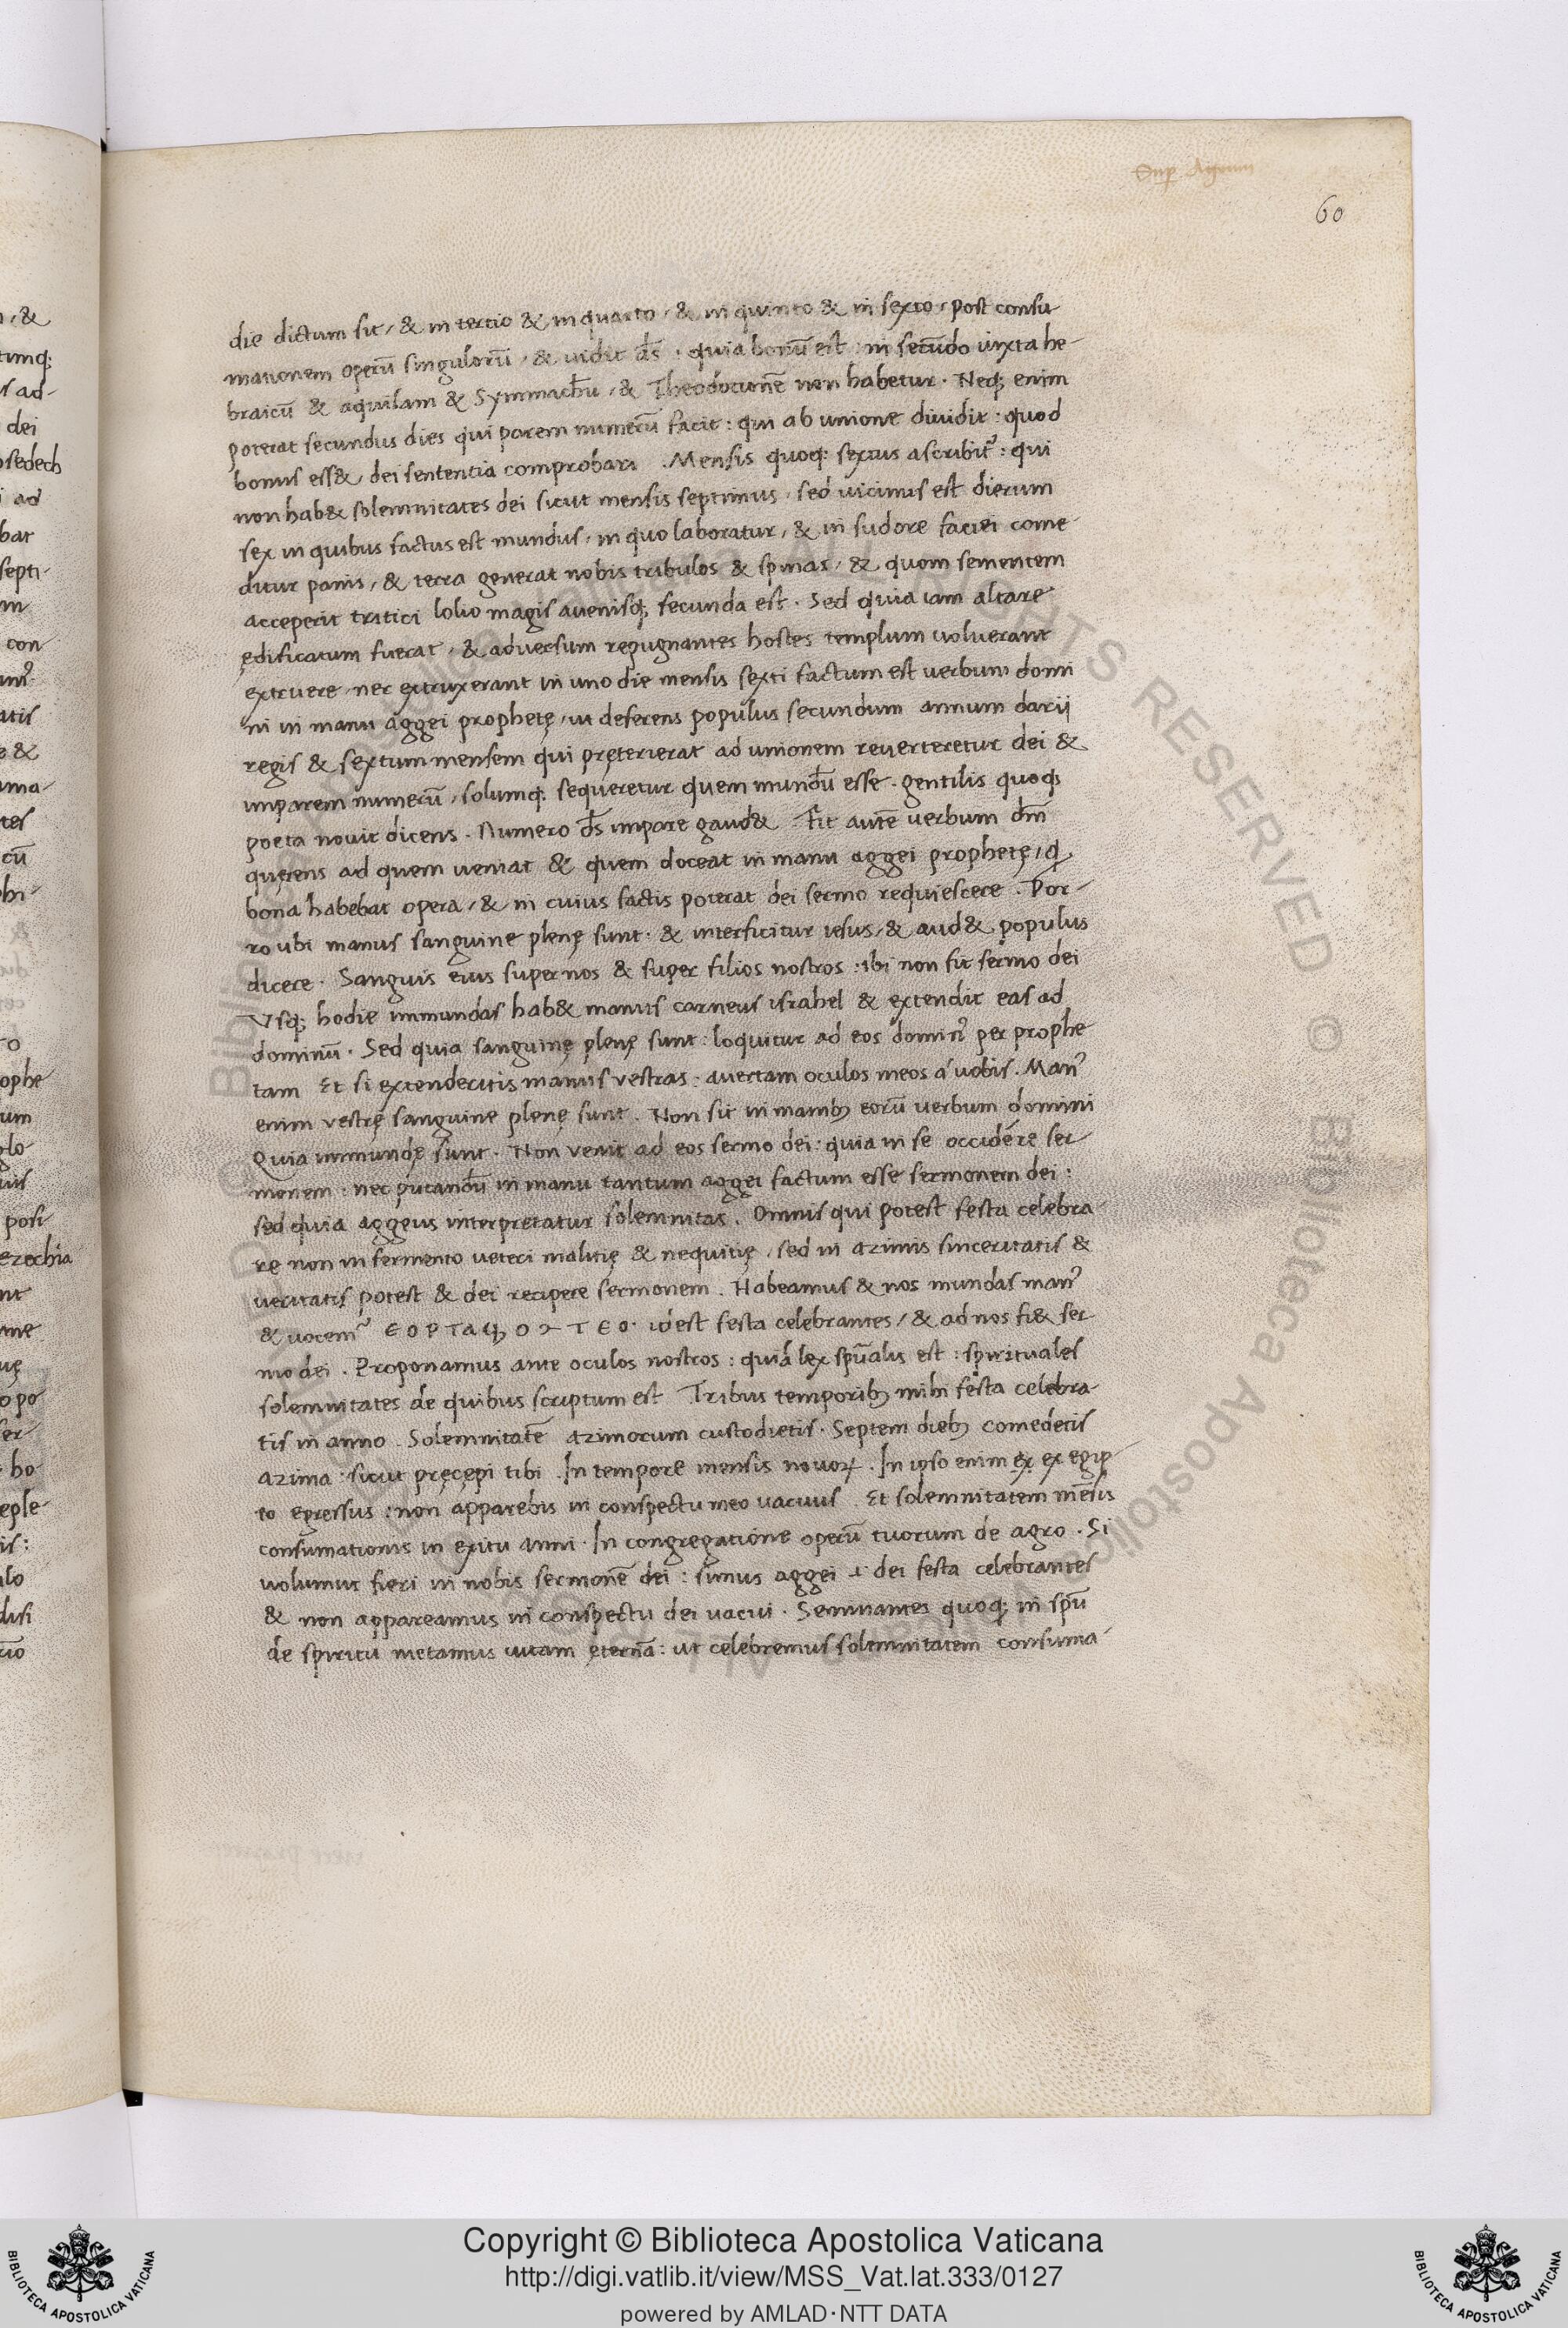 Sup Ageum
60
die dictum sit, & in tertio & in quarto, & in quinto & in sexto, post consu-
mationem operū singulorū, & uidit d̄s. quia bonū est: in secūdo iuxta he-
braicū & aquilam & Symmachū, & Theodotionē non habetur. Neq; enim
poterat secundus dies qui parem numerū facit: qui ab unione diuidit: quod
bonus ess& dei sententia comprobari. Mensis quoq; sextus ascribit᷑: qui
non hab& solemnitates dei sicut mensis septimus, sed uicinus est dierum
sex in quibus factus est mundus, in quo laboratur, & in sudore faciei come-
ditur panis, & terra generat nobis tribulos & spinas, & quom sementem
acceperit tritici lolio magis auenisq; fecunda est. Sed quia iam altare
ędificatum fuerat, & adversum repugnantes hostes templum uoluerant
extruere, nec extruxerant in uno die mensis sexti factum est verbum domi
ni in manu aggei prophetę, ut deserens populus secundum annum darij
regis & sextum mensem qui pręterierat ad unionem reverteretur dei &
imparem numerū, solumq; sequeretur quem mundū esse. gentilis quoq;
poeta novit dicens. Numero d̄s impare gaud& Fit autē verbum dn̄i
quęrens ad quem ueniat & quem doceat in manu aggei prophetę, q
bona habebat opera, & in cuius factis poterat dei sermo requiescere. Por-
ro ubi manus sanguine plenę sunt. & interficitur iesus, & aud& populus
dicere. Sanguis eius super nos & super filios nostros: ibi non fit sermo dei
Vsq; hodie immundas hab& manus carneus israhel & extendit eas ad
dominū. Sed quia sanguinę plenę sunt: loquitur ad eos domin᷒ per prophe
tam Et si extenderitis manus vestras: avertam oculos meos á uobis. Man᷒
enim vestrę sanguine plenę sunt. Non sit in manib; eorū verbum domini
Quia immundę sunt. Non venit ad eos sermo dei: quia in se occidére ser
monem: nec putandū in manu tantum aggei factum esse sermonem dei:
sed quia aggeus interpretatur solemnitas. Omnis qui potest festa celebra
re non in fermento ueteri malitię & nequitię, sed in azimis sinceritatis &
veritatis potest & dei recipere sermonem. Habeamus & nos mundas man᷒
& uocem᷒ ЄΟΡΤΑ ΟϽ-ΤЄΟ. id est festa celebrantes, & ad nos fi& ser
mo dei. Proponamus ante oculos nostros: quia lex spūalis est: spirituales
solemnitates de quibus scriptum est Tribus temporib; mihi festa celebra-
tis in anno. Solemnitatē azimorum custodietis. Septem dieb; comedetis
azima: sicut pręcępi tibi. In tempore mensis novoꝝ. In ipso enim ex ex egip
to egressus: non apparebis in conspectu meo uacuus. Et solemnitatem mēsis
consūmationis in exitu anni. In congregatione operū tuorum de agro. Si
uolumus fieri in nobis sermonē dei: simus aggei .i. dei festa celebrantes
& non appareamus in conspectu dei uacui. Seminantes quoq; in spū
de spiritu metamus uitam ęternā: ut celebremus solemnitatem consuma-
Copyright © Biblioteca Apostolica Vaticana
http://digi.vatlib.it/view/MSS_Vat.lat.333/0127
powered by AMLAD·NTT DATA
BIBLIOTECA APOSTOLICA VATICANA
BIBLIOTECA APOSTOLICA VATICANA